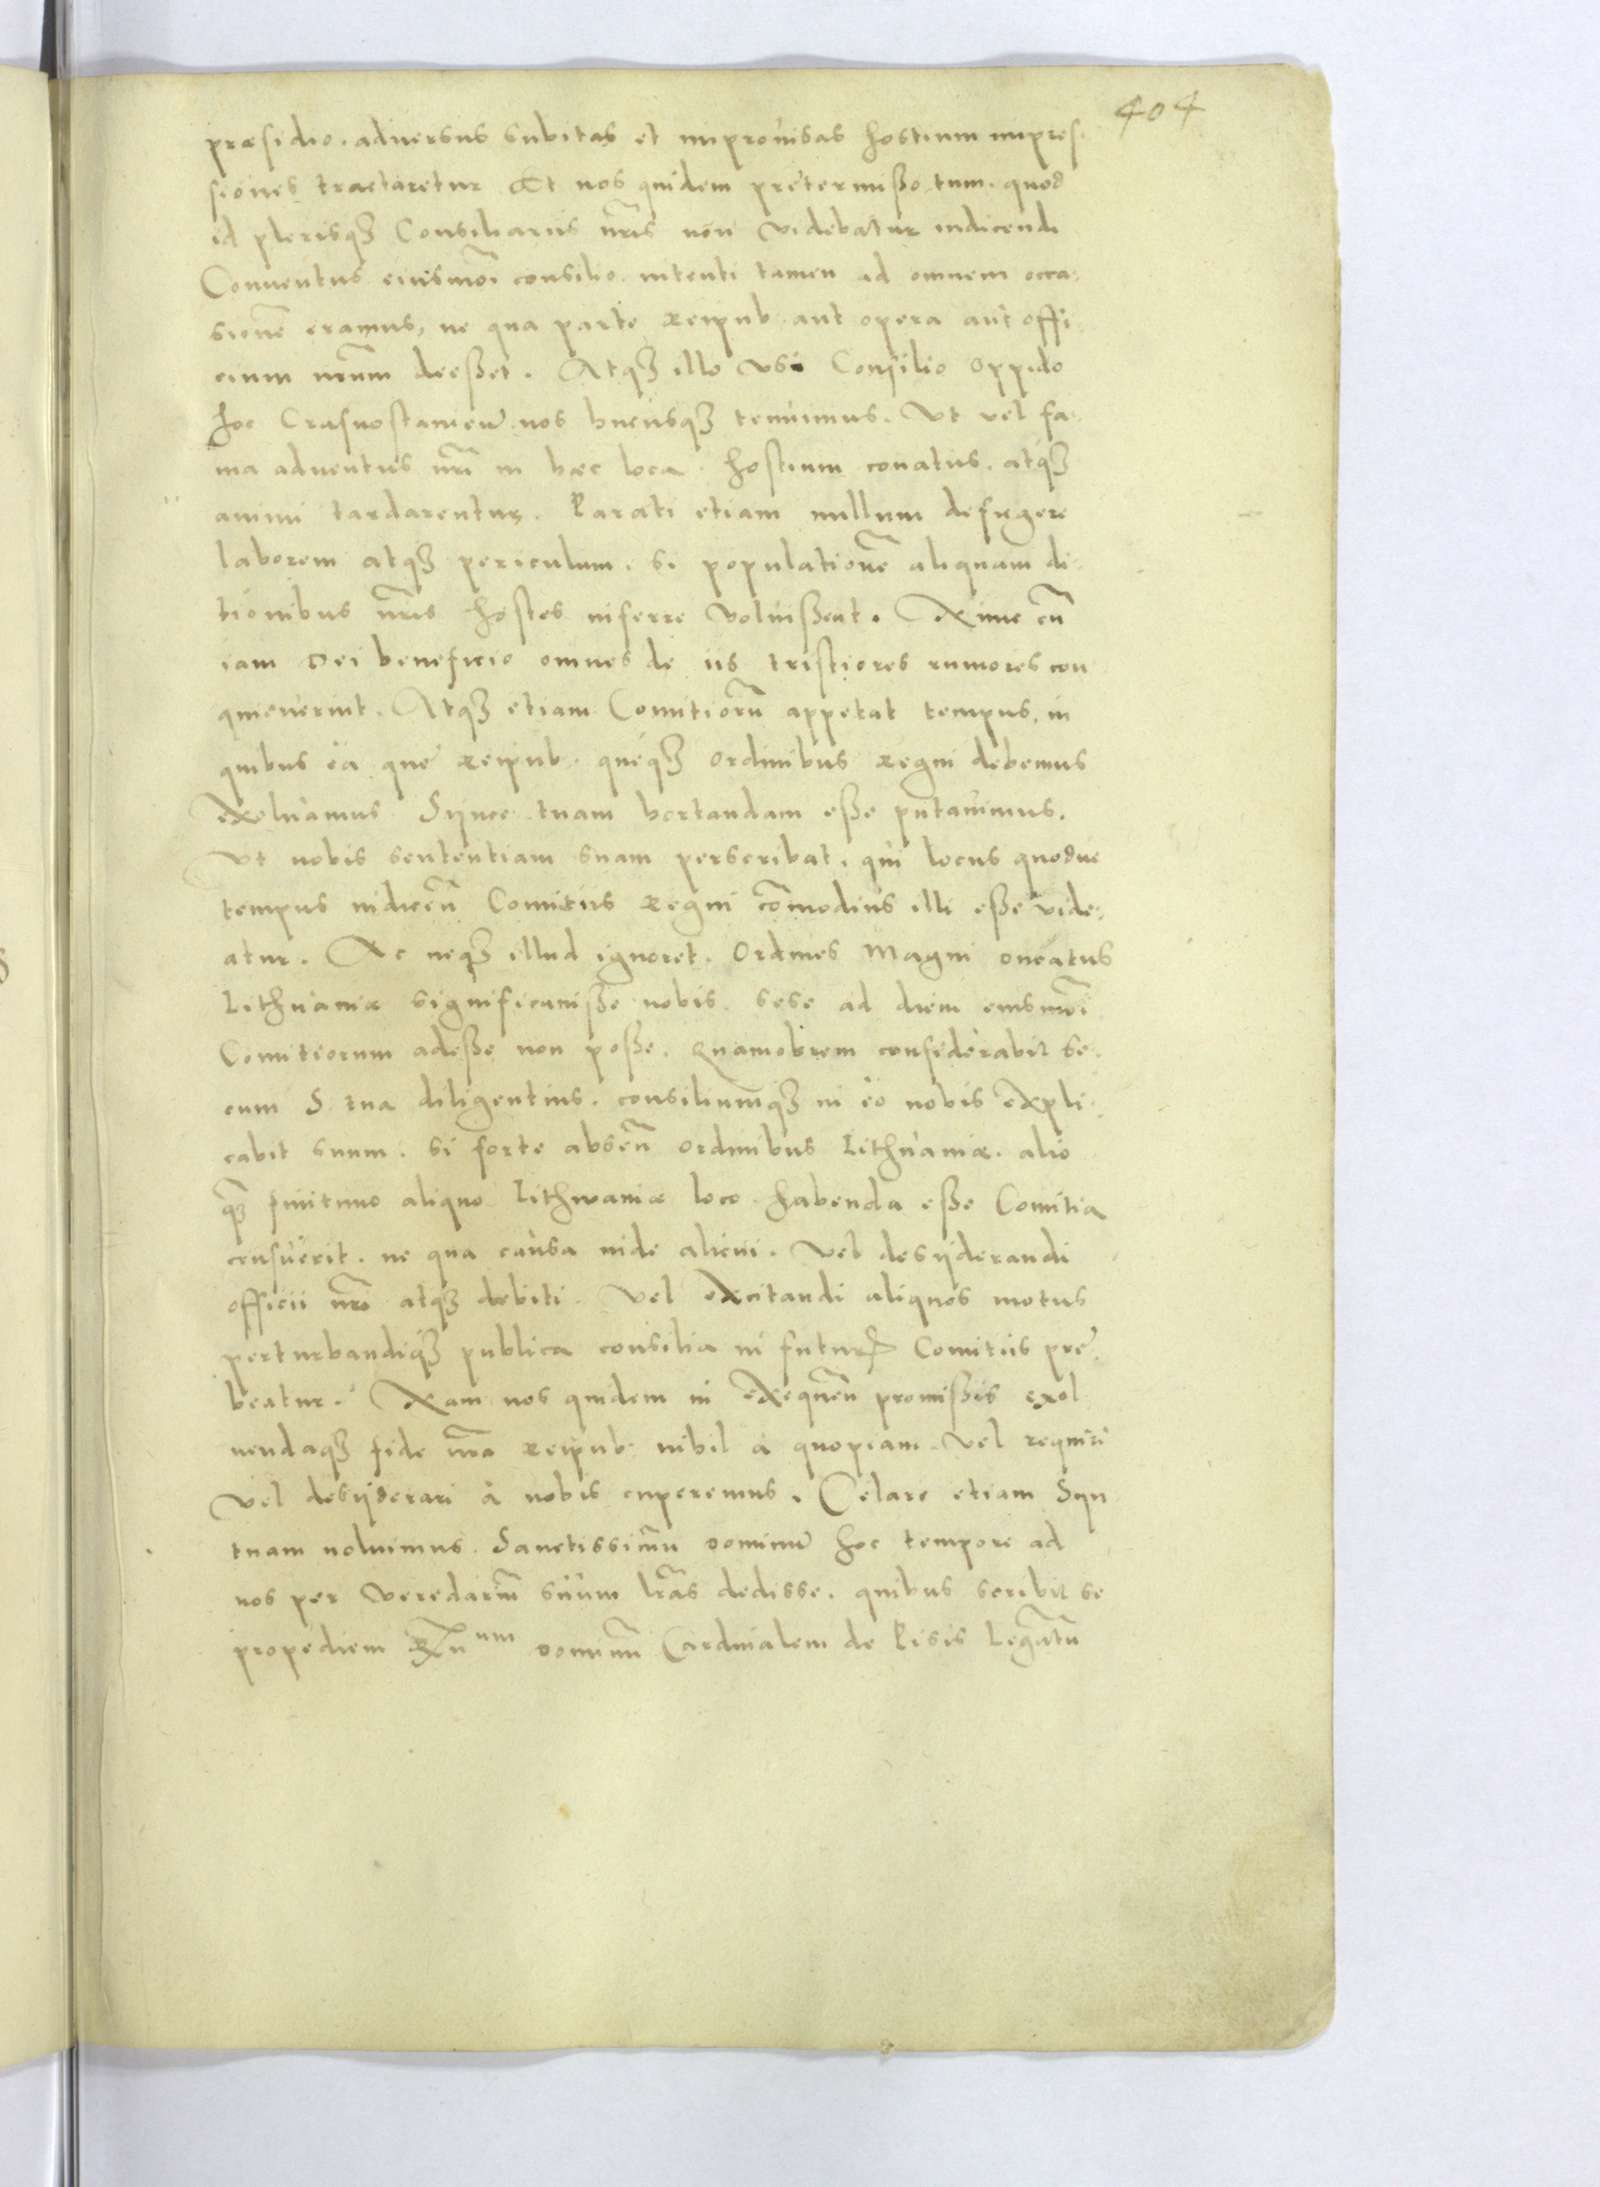 404
præsidio. adversus subitas et improvisas hostium impres:
siones tractaretur Et nos quidem prętermisso tum. quod
id plerisq3 Consiliariis nr̃is non videbatur indicendi
Conventus eiusmõi consilio. intenti tamen ad omnem occa:
sionẽ eramus, ne qua parte Reipub. aut opera aut offi:
cium nr̃um deesset. Atq3 illo usi Consilio oppido
hoc Crasnostawien̄ nos hucusq3 tenuimus. Ut vel fa:
ma adventus nr̃i in hæc loca. hostium conatus. atq3
animi tardarentur. Parati etiam nullum defugere
laborem atq3 periculum. si populationẽ aliquam di:
tionibus nr̃is hostes inferre voluissent. Nunc cũ
iam Dei beneficio omnes de iis tristiores rumores con
quieverint. Atq3 etiam Comitiorũ appetat tempus, in
quibus ea quę Reipub. quęq3 ordinibus Regni debemus
exolvamus Syncc. tuam hortandam esse putavimus.
Ut nobis sententiam suam perscribat. qui locus quodve
tempus indicen̄ Comitiis Regni cõmodius illi esse vide:
atur. Ac neq3 illud ignoret. Ordines Magni Ducatus
Lithuaniæ significavisse nobis. sese ad diem eiusmõi
Comitiorum adesse non posse. Quamobrem considerabit se:
cum S. tua diligentius. consiliumq3 in eo nobis expli:
cabit suum. si forte absen̄ ordinibus Lithuaniæ. alio
q3 finitimo aliquo Lithwaniæ loco habenda esse Comitia
censuerit. ne qua causa inde alicui. vel desyderandi
officii nr̃i atq3 debiti. Vel excitandi aliquos motus
perturbandiq3 publica consilia in futuris Comitiis prę:
beatur. Nam nos quidem in exequen̄ promissis exol
vendaq3 fide nr̃a Reipub. nihil à quopiam. vel requiri
vel desyderari à nobis cuperemus. Celare etiam Syn
tuam noluimus. Sanctissimũ Dominũ hoc tempore ad
nos per Veredariũ suum lr̃as dedisse. quibus scribit se
propediem Rx̃num Dominũ Cardinalem de Pisis Legatũ